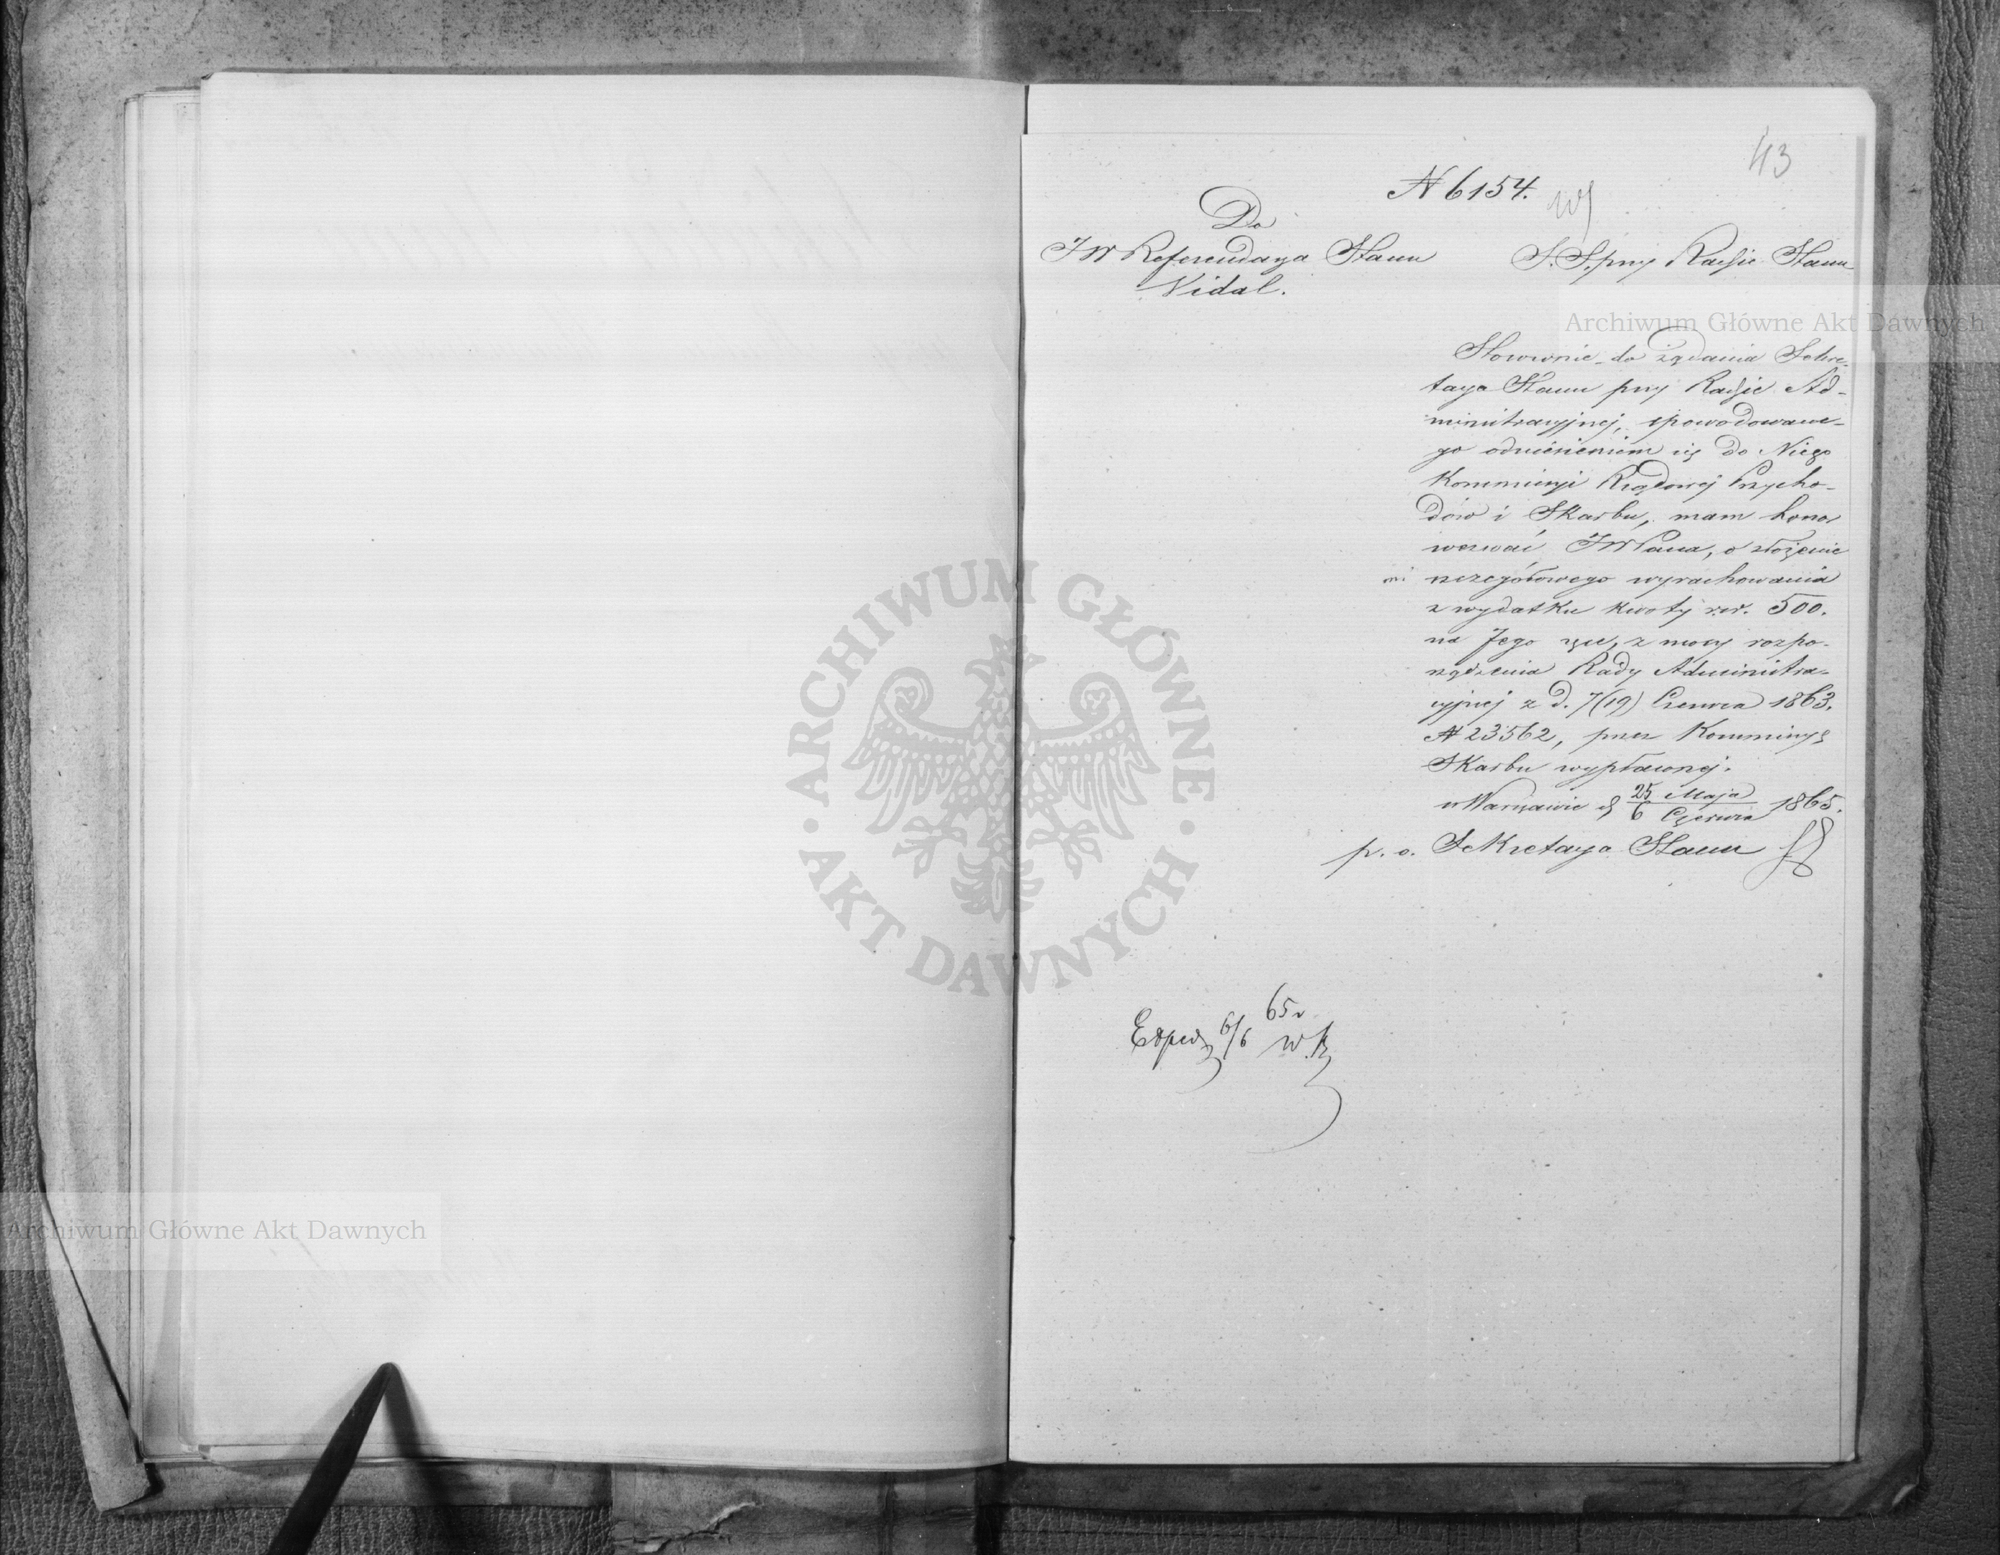 43
N 6154.
Do
JW Referendarza Stanu
Vidal.
S. S. przy Radzie Stanu
Stosownie do żądania Sekre-
tarza Stanu przy Radzie Ad-
ministracyjnej, spowodowane-
go odniesieniem się do Niego
Kommissyi Rządowej Przycho-
dów i Skarbu, mam honor
wezwać JWPana, o złożenie
szczegółowego wyrachowania
z wydatku kwoty rsr. 500.
na Jego ręce, z mocy rozpo-
rządzenia Rady Administra-
cyjnej z d. 7 (19) Czerwca 1863.
N 23562, przez Kommissyę
Skarbu wypłaconej.
w Warszawie d. 25 Maja / 6 Czerwca 1865.
p. o. Sekretarza Stanu
Exped. 6/6 65 r
Archiwum Główne Akt Dawnych
Archiwum Główne Akt Dawnych
ARCHIWUM GŁÓWNE · AKT DAWNYCH ·